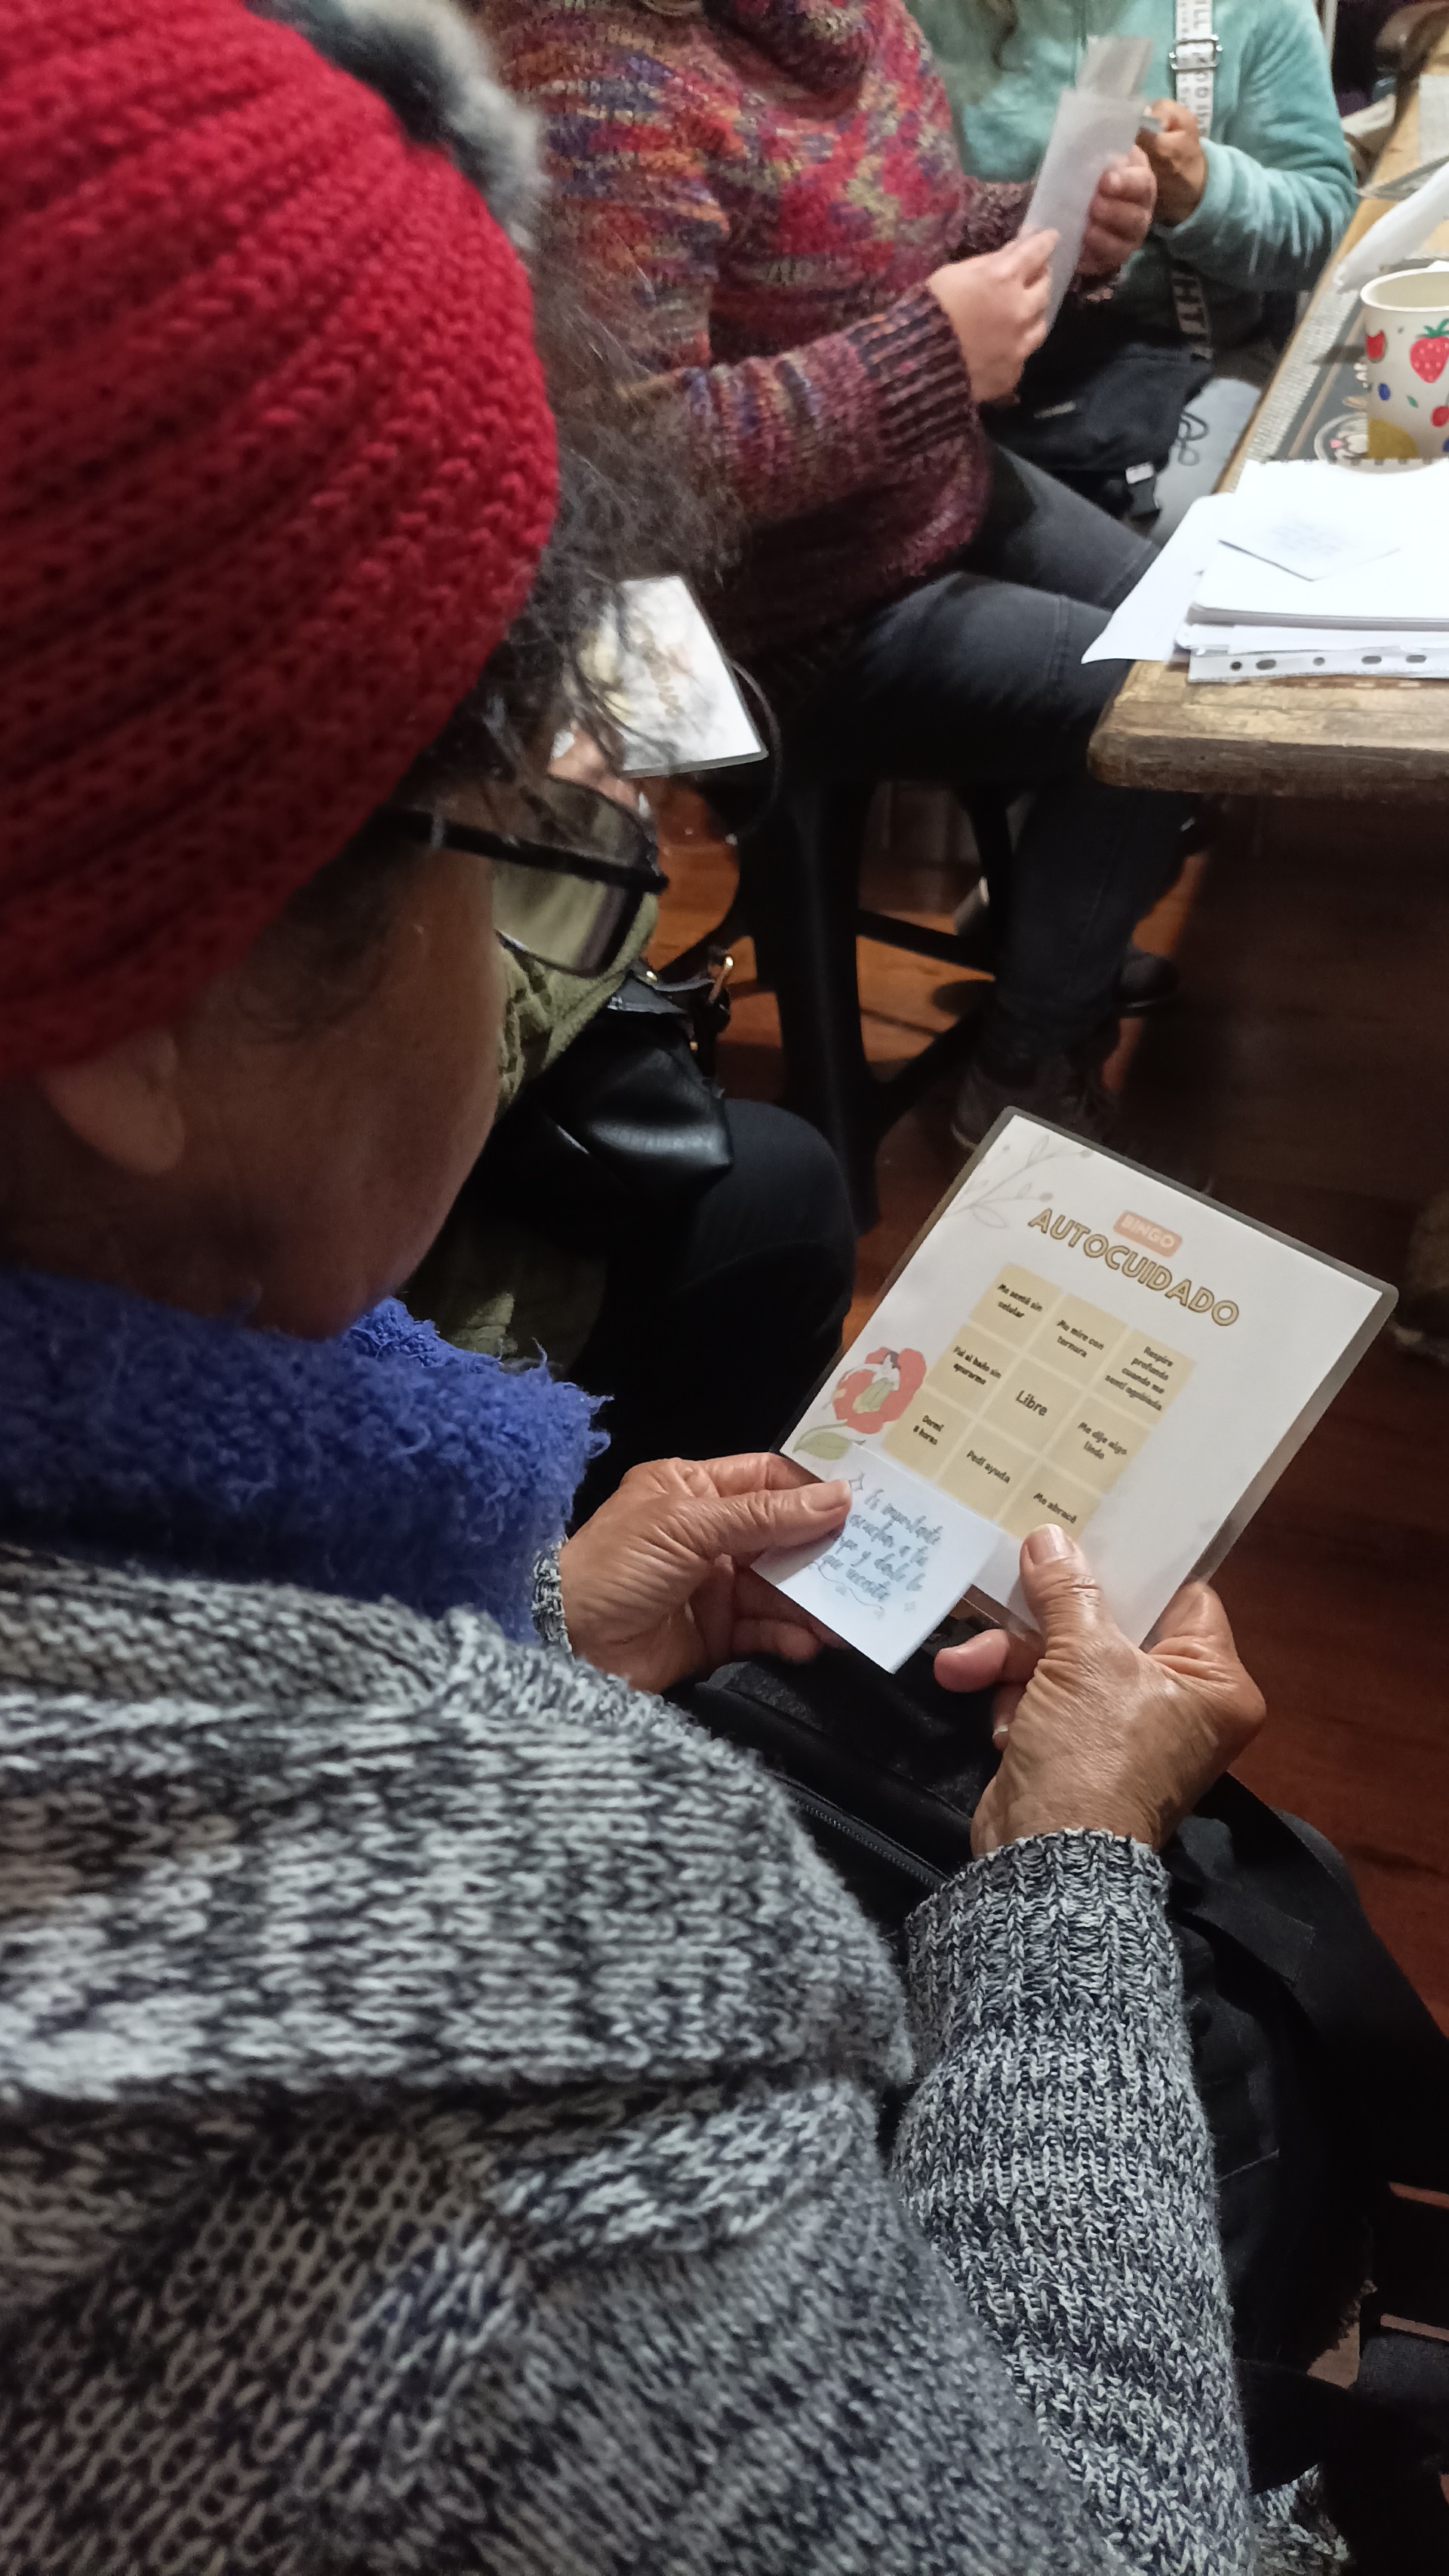 BINGO
AUTOCUIDADO
Me senté sin
celular
Me mire con
ternura
Respire
profundo
cuando me
sentí agobiada
Fui al baño sin
apurarme
Libre
Me dije algo
lindo
Dormí
8 horas
Pedí ayuda
Me abracé
Es importante
escuchar a tu
y darle lo
que necesite